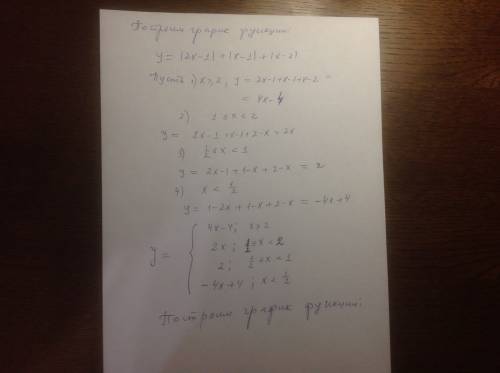 Построим график функции:
y = |2x-1| + |x-1| + |x-2|
Пусть 1) x ≥ 2; y = 2x-1+x-1+x-2 =
= 4x-4
2) 1 ≤ x < 2
y = 2x-1+x-1+2-x = 2x
3) 1/2 ≤ x < 1
y = 2x-1+1-x+2-x = 2
4) x < 1/2
y = 1-2x+1-x+2-x = -4x+4
y = { 4x-4; x ≥ 2
2x; 1 ≤ x < 2
2; 1/2 ≤ x < 1
-4x+4; x < 1/2
Построим график функции: